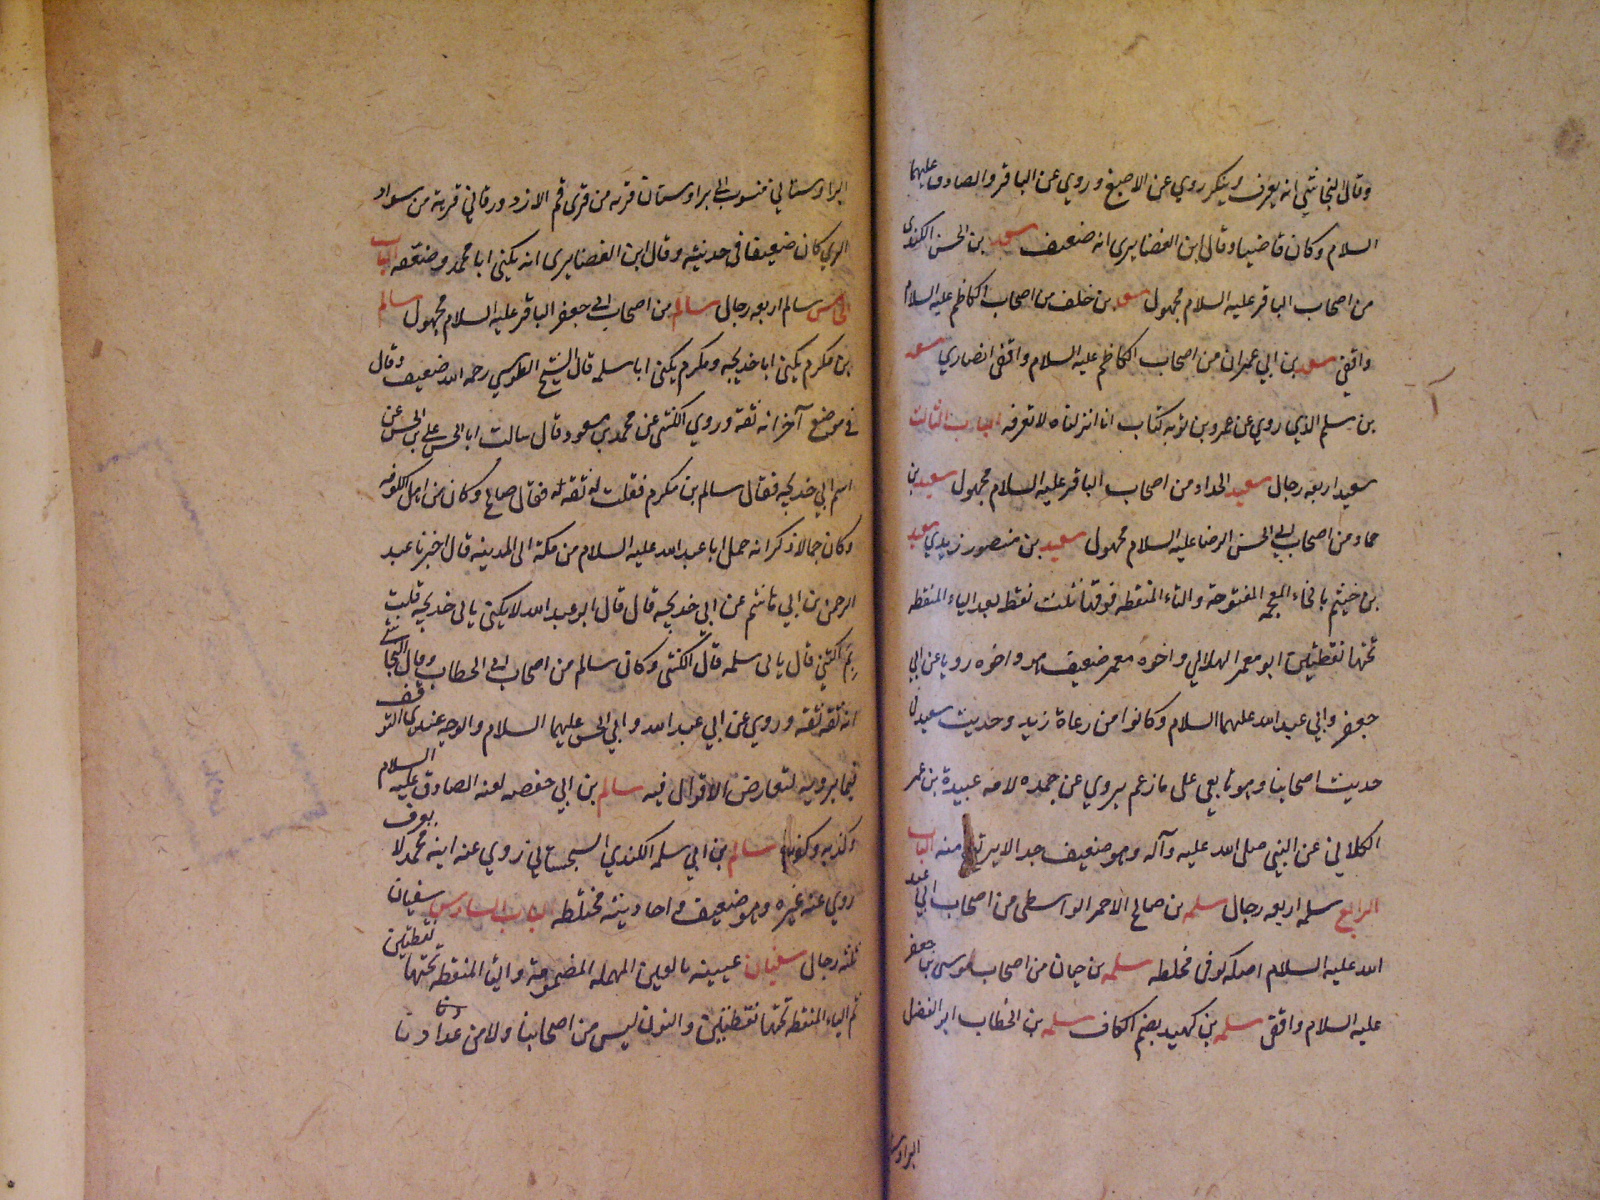 وقال النجاشي انه يعرف وينكر روي عن الاصبغ و روي عن الباقر والصادق عليهما
السلام وكان قاضيا وقال ابن الغضايري انه ضعيف سعد بن الحسن الكندي
من اصحاب الباقر عليه السلام مجهول سعد بن خلف من اصحاب الكاظم عليه السلام
واقفي سعد بن ابي عمران من اصحاب الكاظم عليه السلام واقفي انصاري سعد
بن مسلم الذي روي عن عمرو بن توبه كتاب انا انزلناه لا تعرفه الباب الثالث
سعيد اربعه رجال سعيد الحداد من اصحاب الباقر عليه السلام مجهول سعيد بن
حماد من اصحاب ابي الحسن الرضا عليه السلام مجهول سعيد بن منصور زيدي سعيد
بن خيثم بالخاء المعجمه المفتوحة والثاء المنقطه فوقها ثلث نقط بعد الياء المنقطه
تحتها نقطتين ابو معمر الهلالي واخوه معمر ضعيف هو واخوه رويا عن ابي
جعفر وابي عبد الله عليهما السلام وكانوا من دعاة زيد وحديث سعيد في
حديث اصحابنا وهو تابعي على ما زعم يروي عن جده لامه عبيدة بن عمر
الكلابي عن النبي صلى الله عليه وآله وهو ضعيف جدا لا يرتفع منه الباب
الرابع سلمه اربعه رجال سلمه بن صالح الاحمر الواسطي من اصحاب ابي عبد
الله عليه السلام اصله كوفى مخلطه سلمه بن حيان من اصحاب موسى بن جعفر
عليه السلام واقفى سلمه بن كهيد بضم الكاف سلمه بن الخطاب ابو الفضل
البراوستاني
البراوستاني منسوب الى براوستان قريه من قرى قم الازدورقاني قرية من سواد
الري كان ضعيفا في حديثه وقال ابن الغضايرى انه يكنى ابا محمد وضعفه الباب
الخامس سالم اربعه رجال سالم من اصحاب ابي جعفر الباقر عليه السلام مجهول سالم
بن مكرم يكنى ابا خديجه ومكرم يكنى ابا سلمه قال الشيخ الطوسي رحمه الله ضعيف وقال
في موضع آخر انه ثقة و روي الكشى عن محمد بن مسعود قال سالت ابا الحسن علي بن الحسن عن
اسم ابي خديجه فقال سالم بن مكرم فقلت له ثقه له فقال صالح وكان من اهل الكوفه
وكان جمالا ذكر انه حمل ابا عبد الله عليه السلام من مكة الى المدينه قال اخبرنا عبد
الرحمن بن ابي هاشم عن ابي خديجه قال قال ابو عبد الله لا يكتنى بابى خديجه قلت
بم اكتني قال بابى سلمه قال الكشى وكان سالم من اصحاب ابي الخطاب وقال النجاشي
انه ثقه ثقه و روي عن ابي عبد الله و ابي الحسن عليهما السلام والوجه عندي التوقف
فيما يرويه لتعارض الاقوال فيه سالم بن ابي حفصه لعنه الصادق عليه السلام
وكذبه وكفره سالم بن ابي سلمه الكندي السجستاني روي عنه ابنه محمد لا يعرف
روي عنه غيره وهو ضعيف و احاديثه مختلطه الباب السادس سفيان
ثلثه رجال سفيان عيينه بالعين المهمله المضمومة والياء المنقطه تحتها نقطتين
ثم الياء المنقطه تحتها نقطتين والنون ليس من اصحابنا ولا من عدادنا